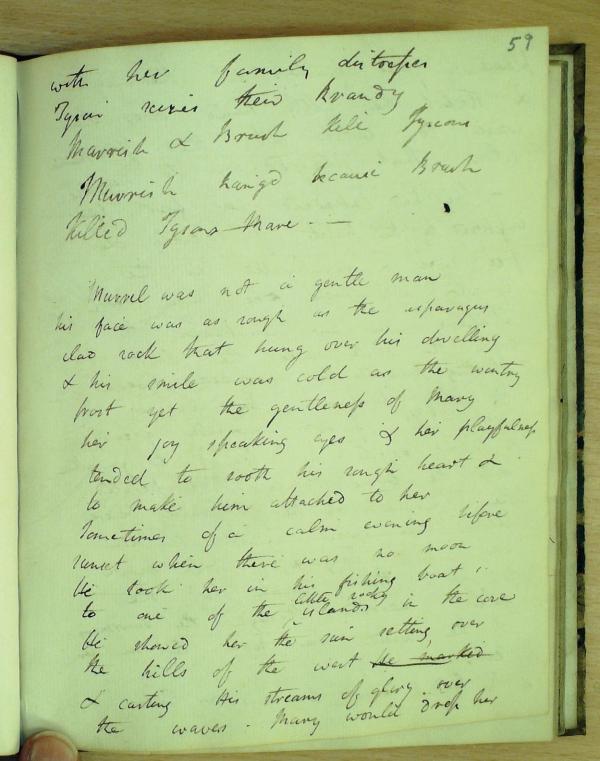 59
with her family distress
Tyson seizes their Brandy
Marrish & Brush kill Tysons
Murrish hang'd because Brush
killed Tysons Mare. —
Murrel was not a gentle man
his face was as rough as the asparagus
clad rock that hung over his dwelling
& his smile was cold as the wintry
frost yet the gentleness of Mary
her joy speaking eyes & her playfulness
tended to sooth his rough heart &
to make him attached to her
Sometimes of a calm evening before
sunset when there was no moon
He took her in his fishing boat
little rocky
to one of the islands in the cove
He showed her the sun setting over
the hills of the west he marked
& casting His streams of glory over
the waves. Mary would drop her